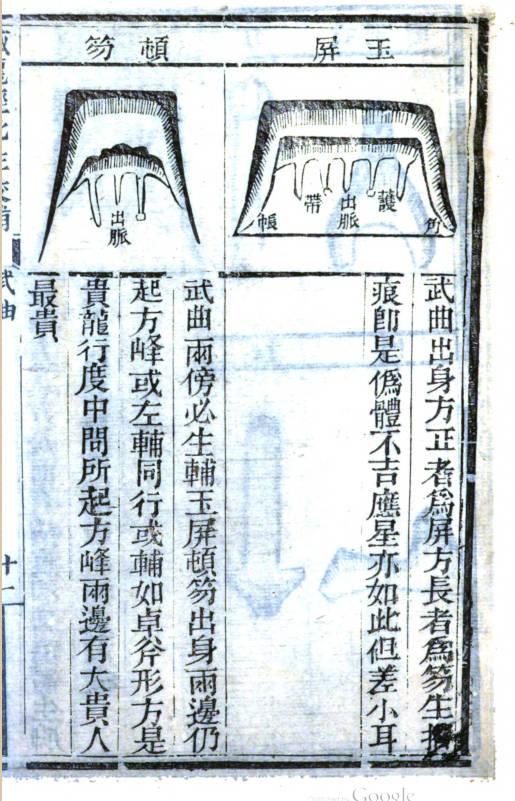 玉屏
護
出脈
帶
角
帳
武曲出身方正者爲屏方長者爲笏生
痕卽是僞體不吉應星亦如此但差小耳
頓笏
出脈
武曲兩傍必生輔玉屏頓笏出身兩邊仍
起方峰或左輔同行或輔如卓斧形方是
貴龍行度中間所起方峰兩邊有大貴人
最貴
武曲
Google